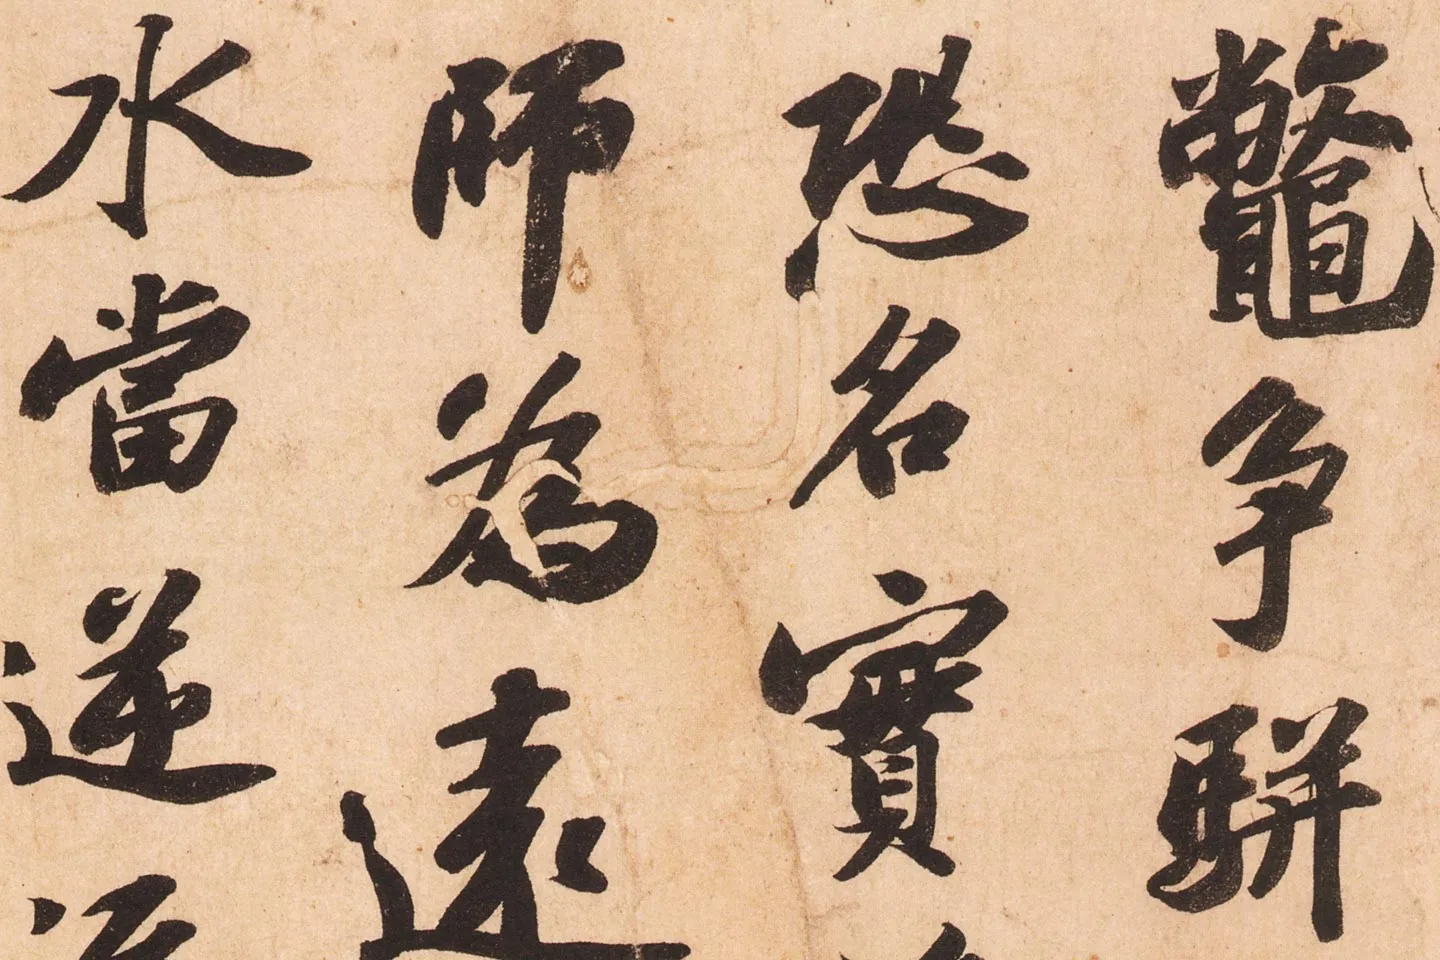 鼈争駢
恐名實
師為遠
水當逆